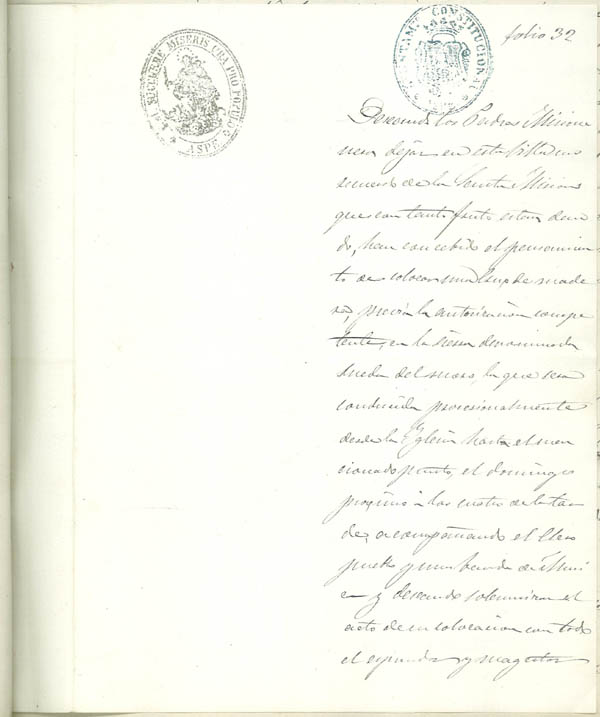 SUCURRERE MISERIS CURA PRO POPULO
ASPE
AYUNTAMT. CONSTITUCIONAL
folio 32
Deseando los Padres Misione
ros dejar en esta Villa un
recuerdo de la Santa Mision
que con tanto fruto estan dan
do, han concebido el pensamien
to de colocar una Cruz de made
ra, previa la autorizacion compe
tente, en la sierra denominada
del
conducida procesionalmente
desde la Yglesia hasta el men
cionado punto, el domingo
proximo á las cuatro de la tar
de, acompañando el Clero
pueblo y una banda de Musi
ca y deseando solemnizar el
acto de su colocacion con todo
el esplendor y magestad